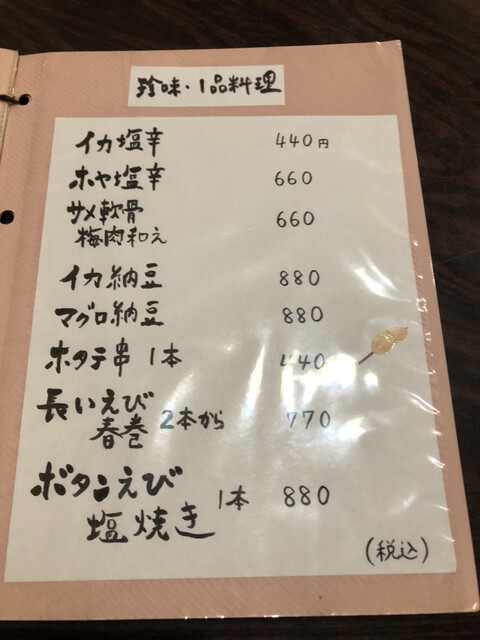 珍味・1品料理
イカ塩辛 440円
ホヤ塩辛 660
サメ軟骨 660
梅肉和え
イカ納豆 880
マグロ納豆 880
ホタテ串 1本 440
長いえび
春巻 2本から 770
ボタンえび
塩焼き 1本 880
(税込)